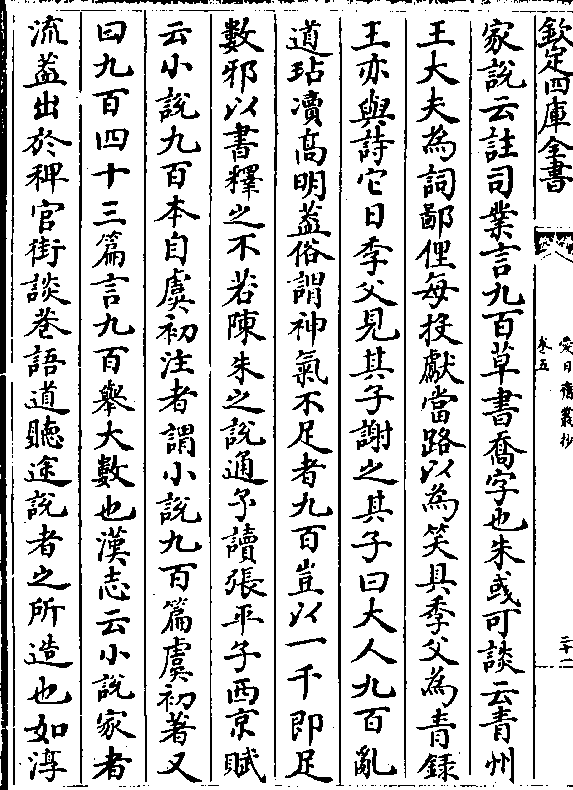 欽定四庫全書
愛日齋叢抄
卷五
二十二
家說云註司業言九百草書喬字也朱彧可談云青州
王大夫為詞鄙俚每投獻當路以為笑具季父為青錄
王亦與詩它日季父見其子謝之其子曰大人九百亂
道玷凟髙明葢俗謂神氣不足者九百豈以一千即足
數邪以書釋之不若陳朱之說通予讀張平子西京賦
云小說九百本自虞初注者謂小說九百篇虞初著又
曰九百四十三篇言九百舉大數也漢志云小說家者
流葢出於稗官街談巷語道聽途說者之所造也如淳